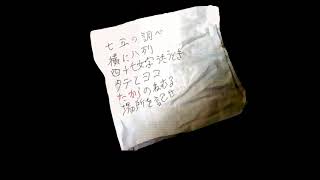 七五の調べ
横に八列
四十七文字読むとき
タテとヨコ
たからのねむる
場所を記せ